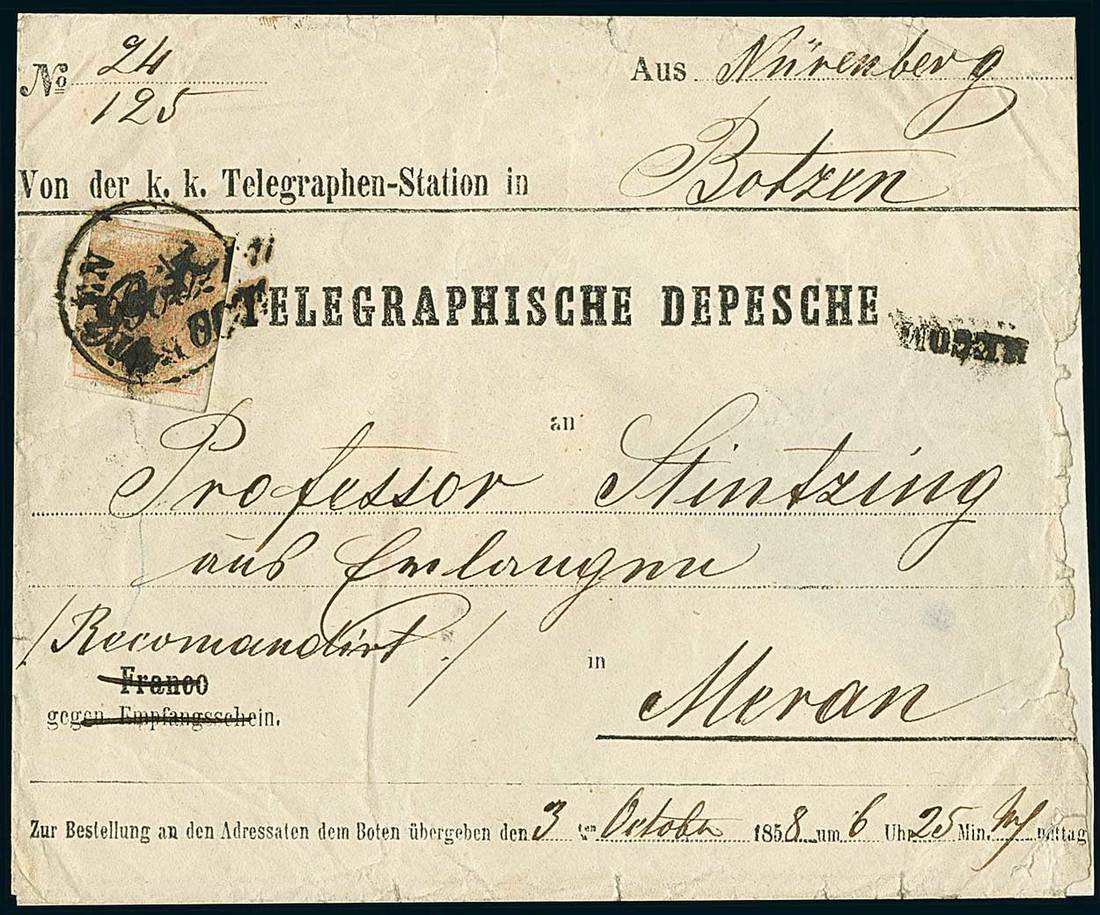 No 24 Aus Nürenberg
125
Von der k. k. Telegraphen-Station in Botzen
TELEGRAPHISCHE DEPESCHE RECOM
an
Professor Stintzing
aus Erlangen
/Recomandirt./
Franco in Meran
gegen Empfangsschein.
Zur Bestellung an den Adressaten dem Boten übergeben den 3 ten October 1858 um 6 Uhr 25 Min. N mittag